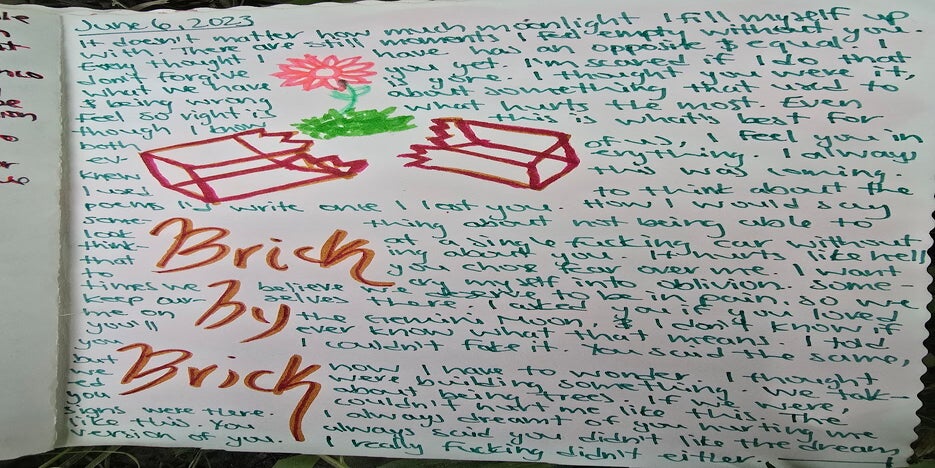 June 6, 2023
It doesn't matter how much moonlight I fill myself up
with. There are still moments I feel empty without you.
Even thought I love has an opposite & equal. I
don't forgive you yet. I'm scared if I do that
what we have is gone. I thought you were it,
& being wrong about something that used to
feel so right is what hurts the most. Even
though I know this is what's best for
both of us, I feel you in
everything. I always
knew this was coming.
I used to think about the
poems I'd write once I lost you. How I would say
some- thing about not being able to
look at a single fucking car without
think- ing about you. It hurts like hell
that you chose fear over me. I want
to cry myself into oblivion. Some-
times we believe we deserve to be in pain. so we
keep our- selves there. I asked you if you loved
me on the Gemini's Moon, & I don't know if
you'll ever know what that means. I told
you I couldn't fake it. You said the same,
but now I have to wonder. I thought
we were building something. We talk-
ed about being trees. If we were,
you couldn't hurt me like this. The
signs were there. I always dreamt of you hurting me
like this. You always said you didn't like the dream
version of you. I really fucking didn't either.
Brick
By
Brick